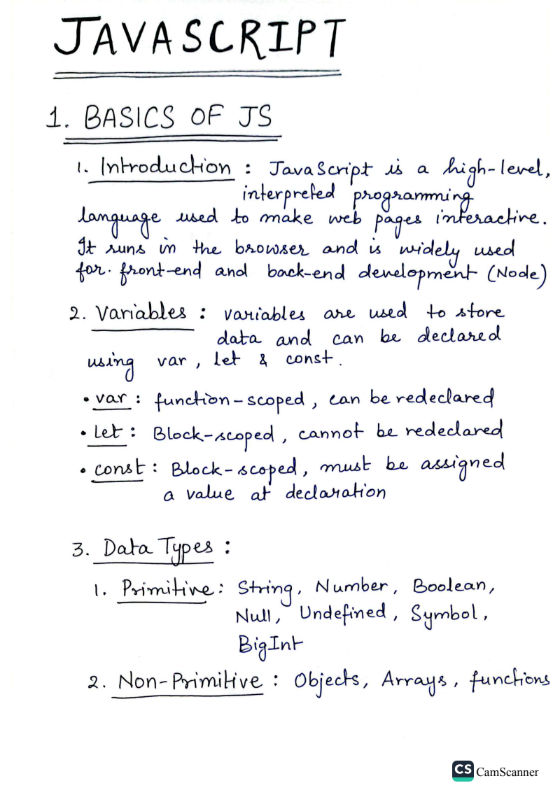 JAVASCRIPT
1. BASICS OF JS
1. Introduction : JavaScript is a high-level,
interpreted programming
language used to make web pages interactive.
It runs in the browser and is widely used
for. front-end and back-end development (Node)
2. Variables : variables are used to store
data and can be declared
using var, let & const.
• var : function-scoped, can be redeclared
• Let : Block-scoped, cannot be redeclared
• const : Block-scoped, must be assigned
a value at declaration
3. Data Types :
1. Primitive : String, Number, Boolean,
Null, Undefined, Symbol,
BigInt
2. Non-Primitive : Objects, Arrays, functions
CS CamScanner